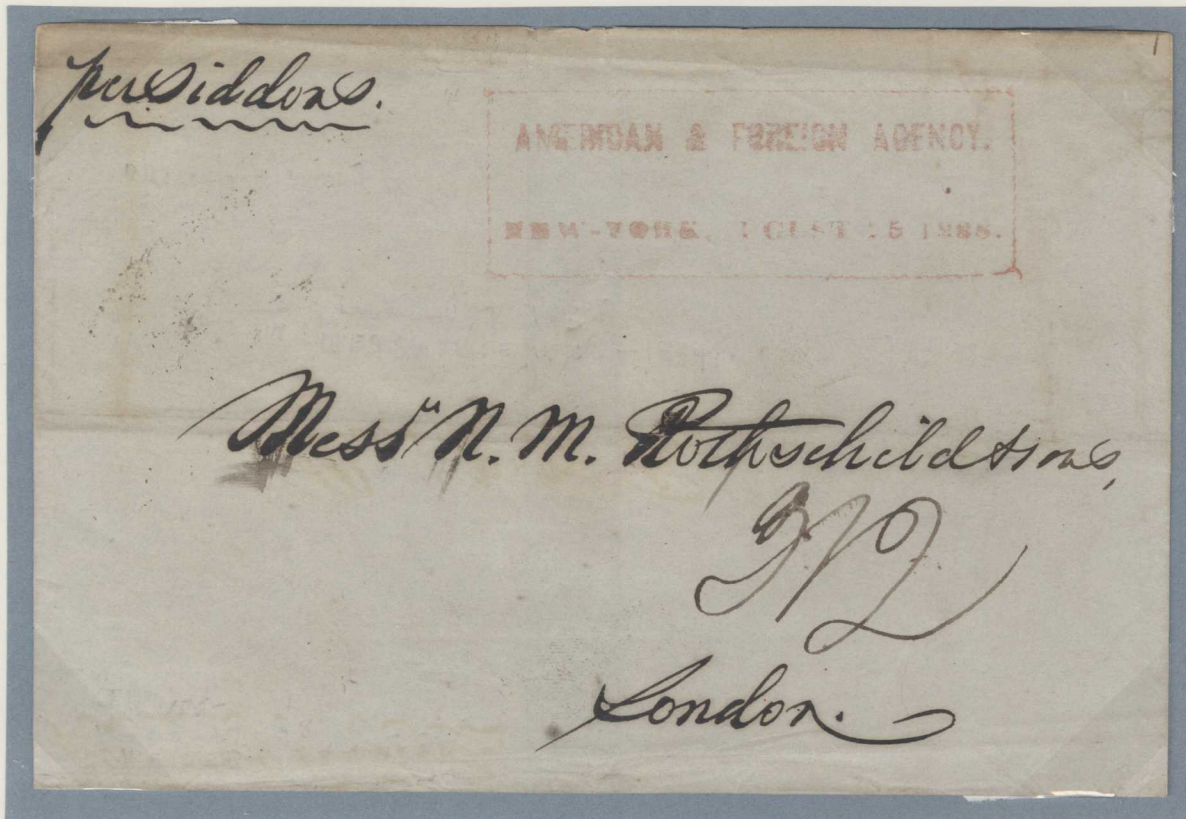 per Siddons.
AMERICAN & FOREIGN AGENCY.
NEW-YORK,
Messrs N. M. Rothschild & Sons,
London.